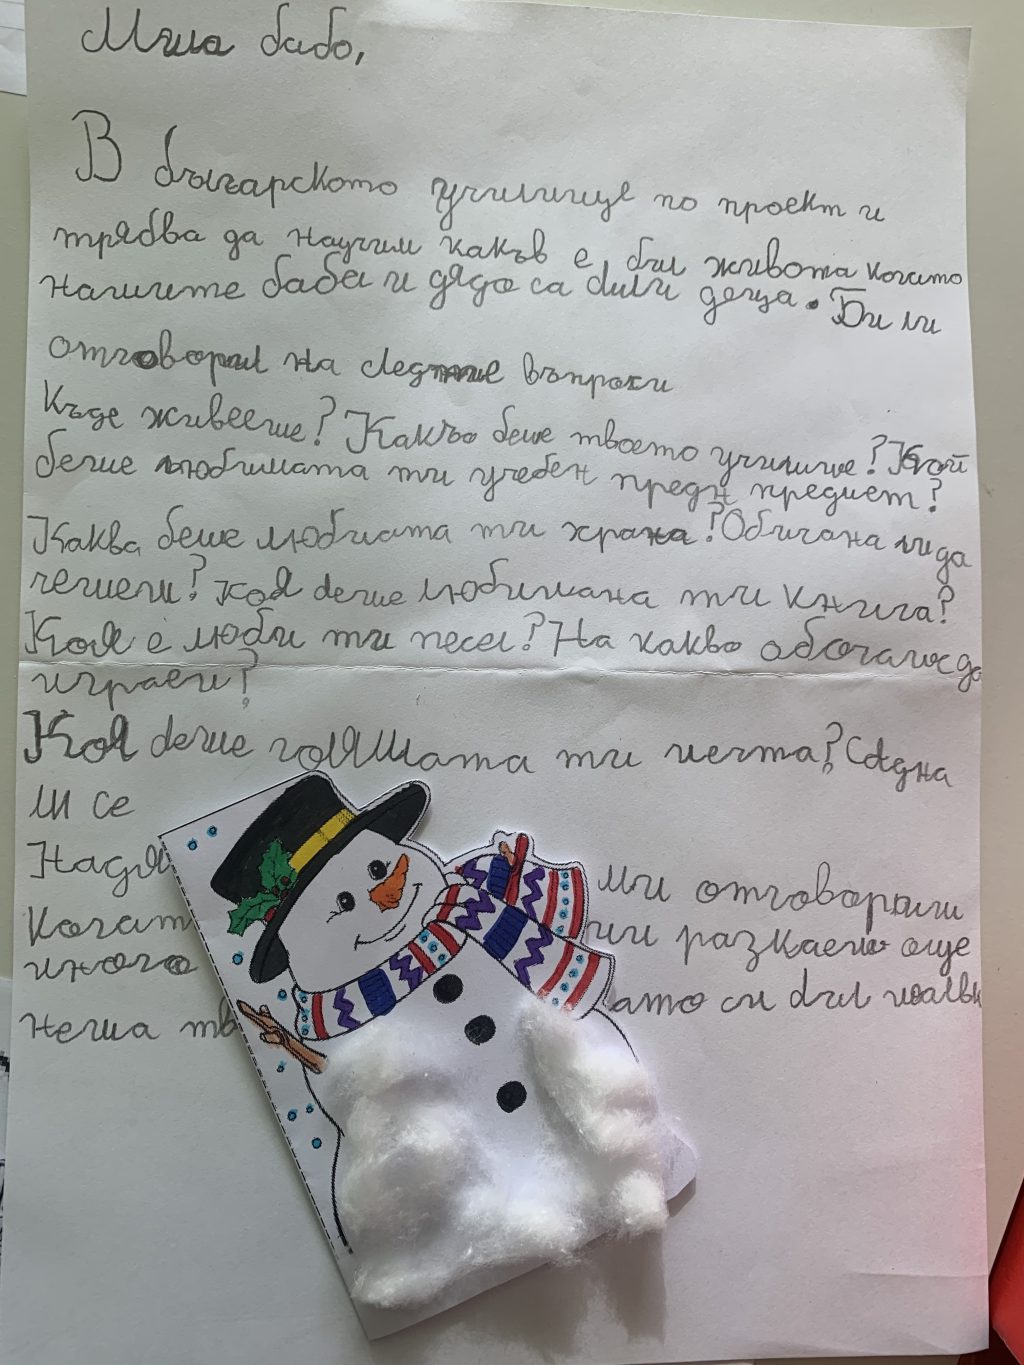 Мила бабо,
В българското училище по проект и
трябва да научим какъв е бил живота когато
нашите баби и дядо са били деца. Би ли
отговорил на следние въпроси
Къде живееше? Какъо беше твоето училище? Кой
беше любимата ти учебен предн предмет?
Каква беше любиата ти храна? Обичана ли да
четеш? Коя беше любимана ти книга?
Коя е люби ти песен? На какво обочаше да
играеш?
Коя беше голямата ти мечта? Сбъдна
ли се
Надя ми отговориш
Когат ми разкаеш още
много
неша тв ато си бил малък